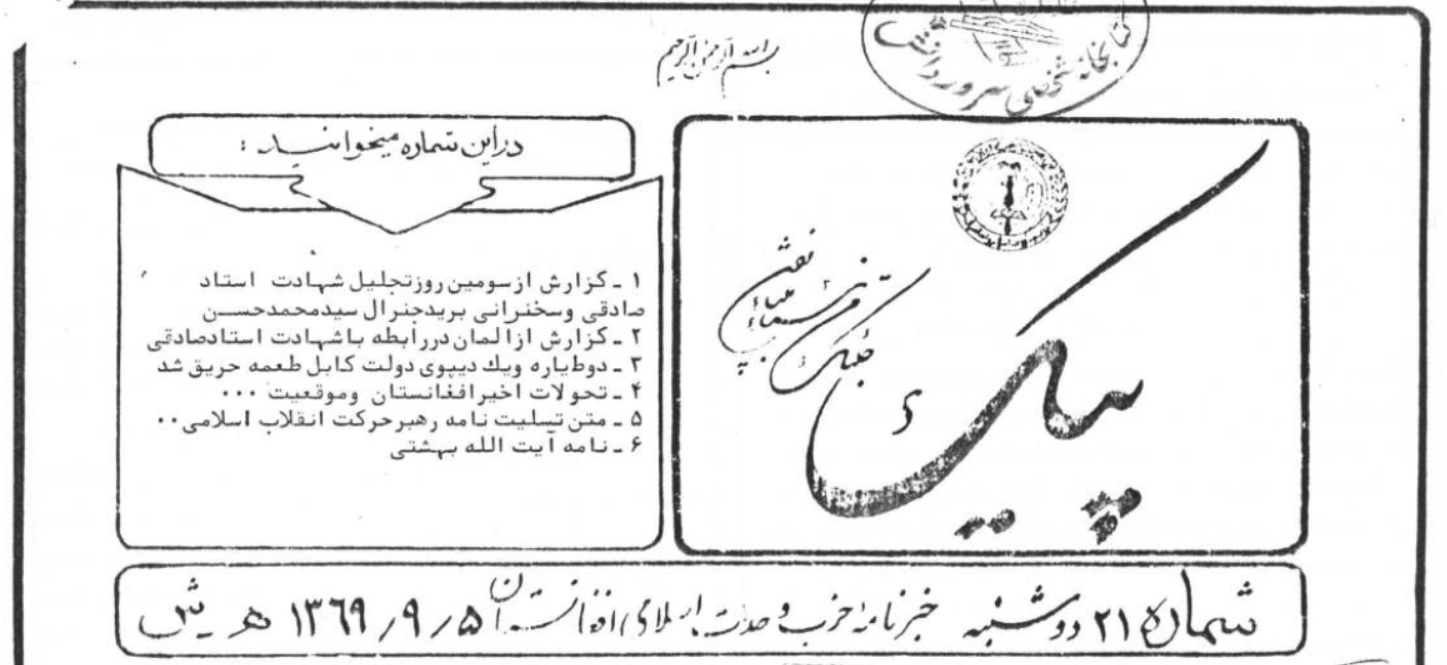 بسم الله الرحمن الرحیم
کتابخانه شخصی سرور دانش
پیک
دراین شماره میخوانید :
۱ ـ گزارش ازسومین روزتجلیل شهادت استاد
صادقی وسخنرانی بریدجنرال سیدمحمدحسن
۲ ـ گزارش ازالمان دررابطه باشهادت استادصادقی
۳ ـ دوطیاره ویك دیپوی دولت کابل طعمه حریق شد
۴ ـ تحولات اخیرافغانستان وموقعیت ۰۰۰
۵ ـ متن تسلیت نامه رهبرحرکت انقلاب اسلامی۰۰
۶ ـ نامه آیت الله بهشتی
شماره ۲۱ دوشنبه خبرنامهٔ حزب وحدت اسلامی افغانستان ۵ / ۹ / ۱۳۶۹ هـ ش